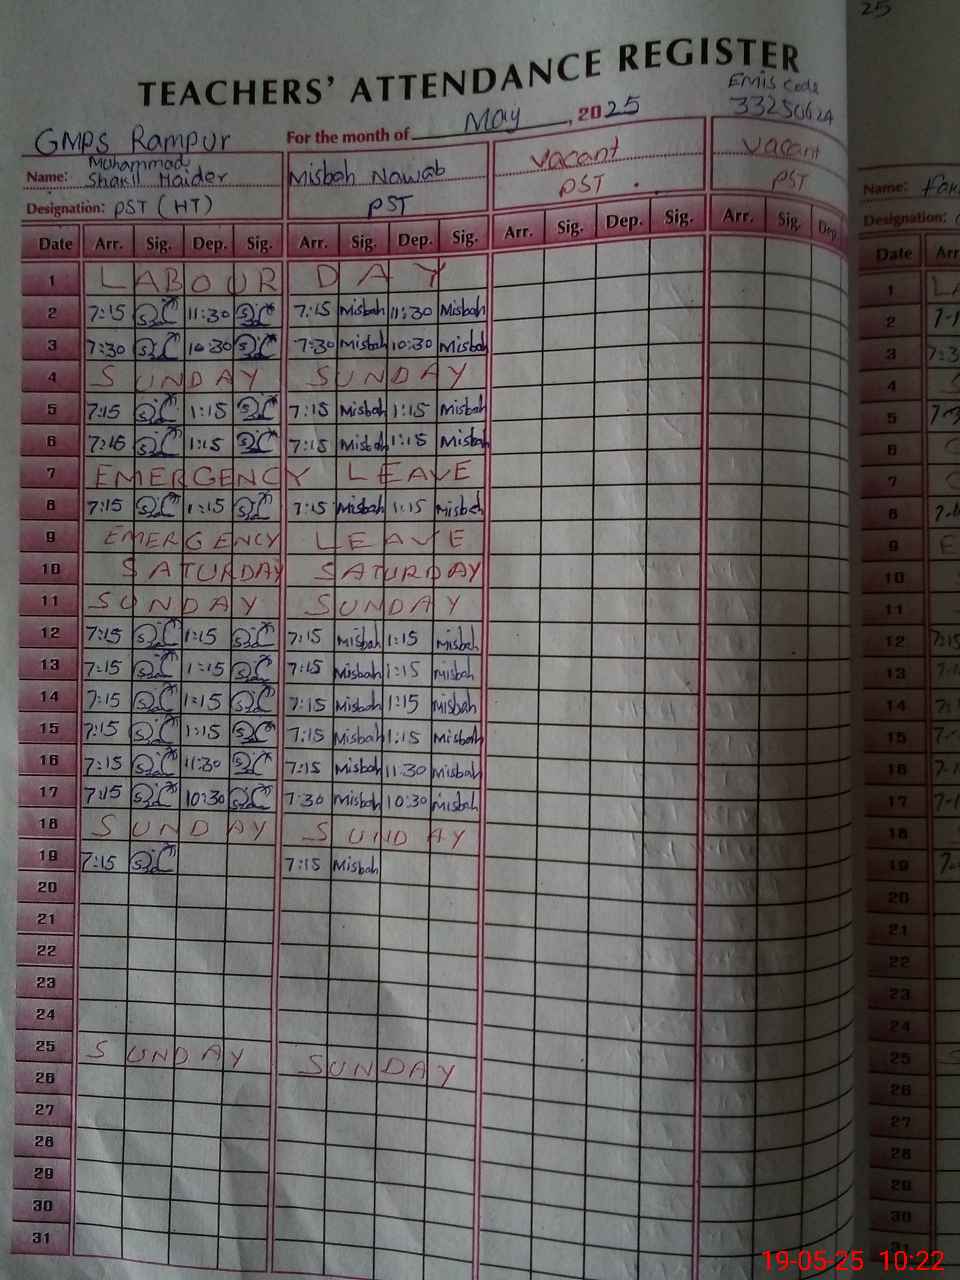 25
TEACHERS' ATTENDANCE REGISTER
EMIS Code
33250624
GMPS Rampur For the month of May, 2025
Name: Muhammad Shakil Haider Misbah Nawab Vacant Vacant
Designation: PST (HT) PST PST PST
Date Arr. Sig. Dep. Sig. Arr. Sig. Dep. Sig. Arr. Sig. Dep. Sig. Arr. Sig. Dep.
1 LABOUR DAY
2 7:15 11:30 7:15 Misbah 11:30 Misbah
3 7:30 10:30 7:30 Misbah 10:30 Misbah
4 SUNDAY SUNDAY
5 7:15 1:15 7:15 Misbah 1:15 Misbah
6 7:15 1:15 7:15 Misbah 1:15 Misbah
7 EMERGENCY LEAVE
8 7:15 1:15 7:15 Misbah 1:15 Misbah
9 EMERGENCY LEAVE
10 SATURDAY SATURDAY
11 SUNDAY SUNDAY
12 7:15 1:15 7:15 Misbah 1:15 Misbah
13 7:15 1:15 7:15 Misbah 1:15 Misbah
14 7:15 1:15 7:15 Misbah 1:15 Misbah
15 7:15 1:15 7:15 Misbah 1:15 Misbah
16 7:15 11:30 7:15 Misbah 11:30 Misbah
17 7:15 10:30 7:30 Misbah 10:30 Misbah
18 SUNDAY SUNDAY
19 7:15 7:15 Misbah
20
21
22
23
24
25 SUNDAY SUNDAY
26
27
28
29
30
31
Name:
Designation:
Date Arr
1
2
3
4
5
6
7
8
9
10
11
12
13
14
15
16
17
18
19
20
21
22
23
24
25
26
27
28
29
30
31
19-05-25 10:22